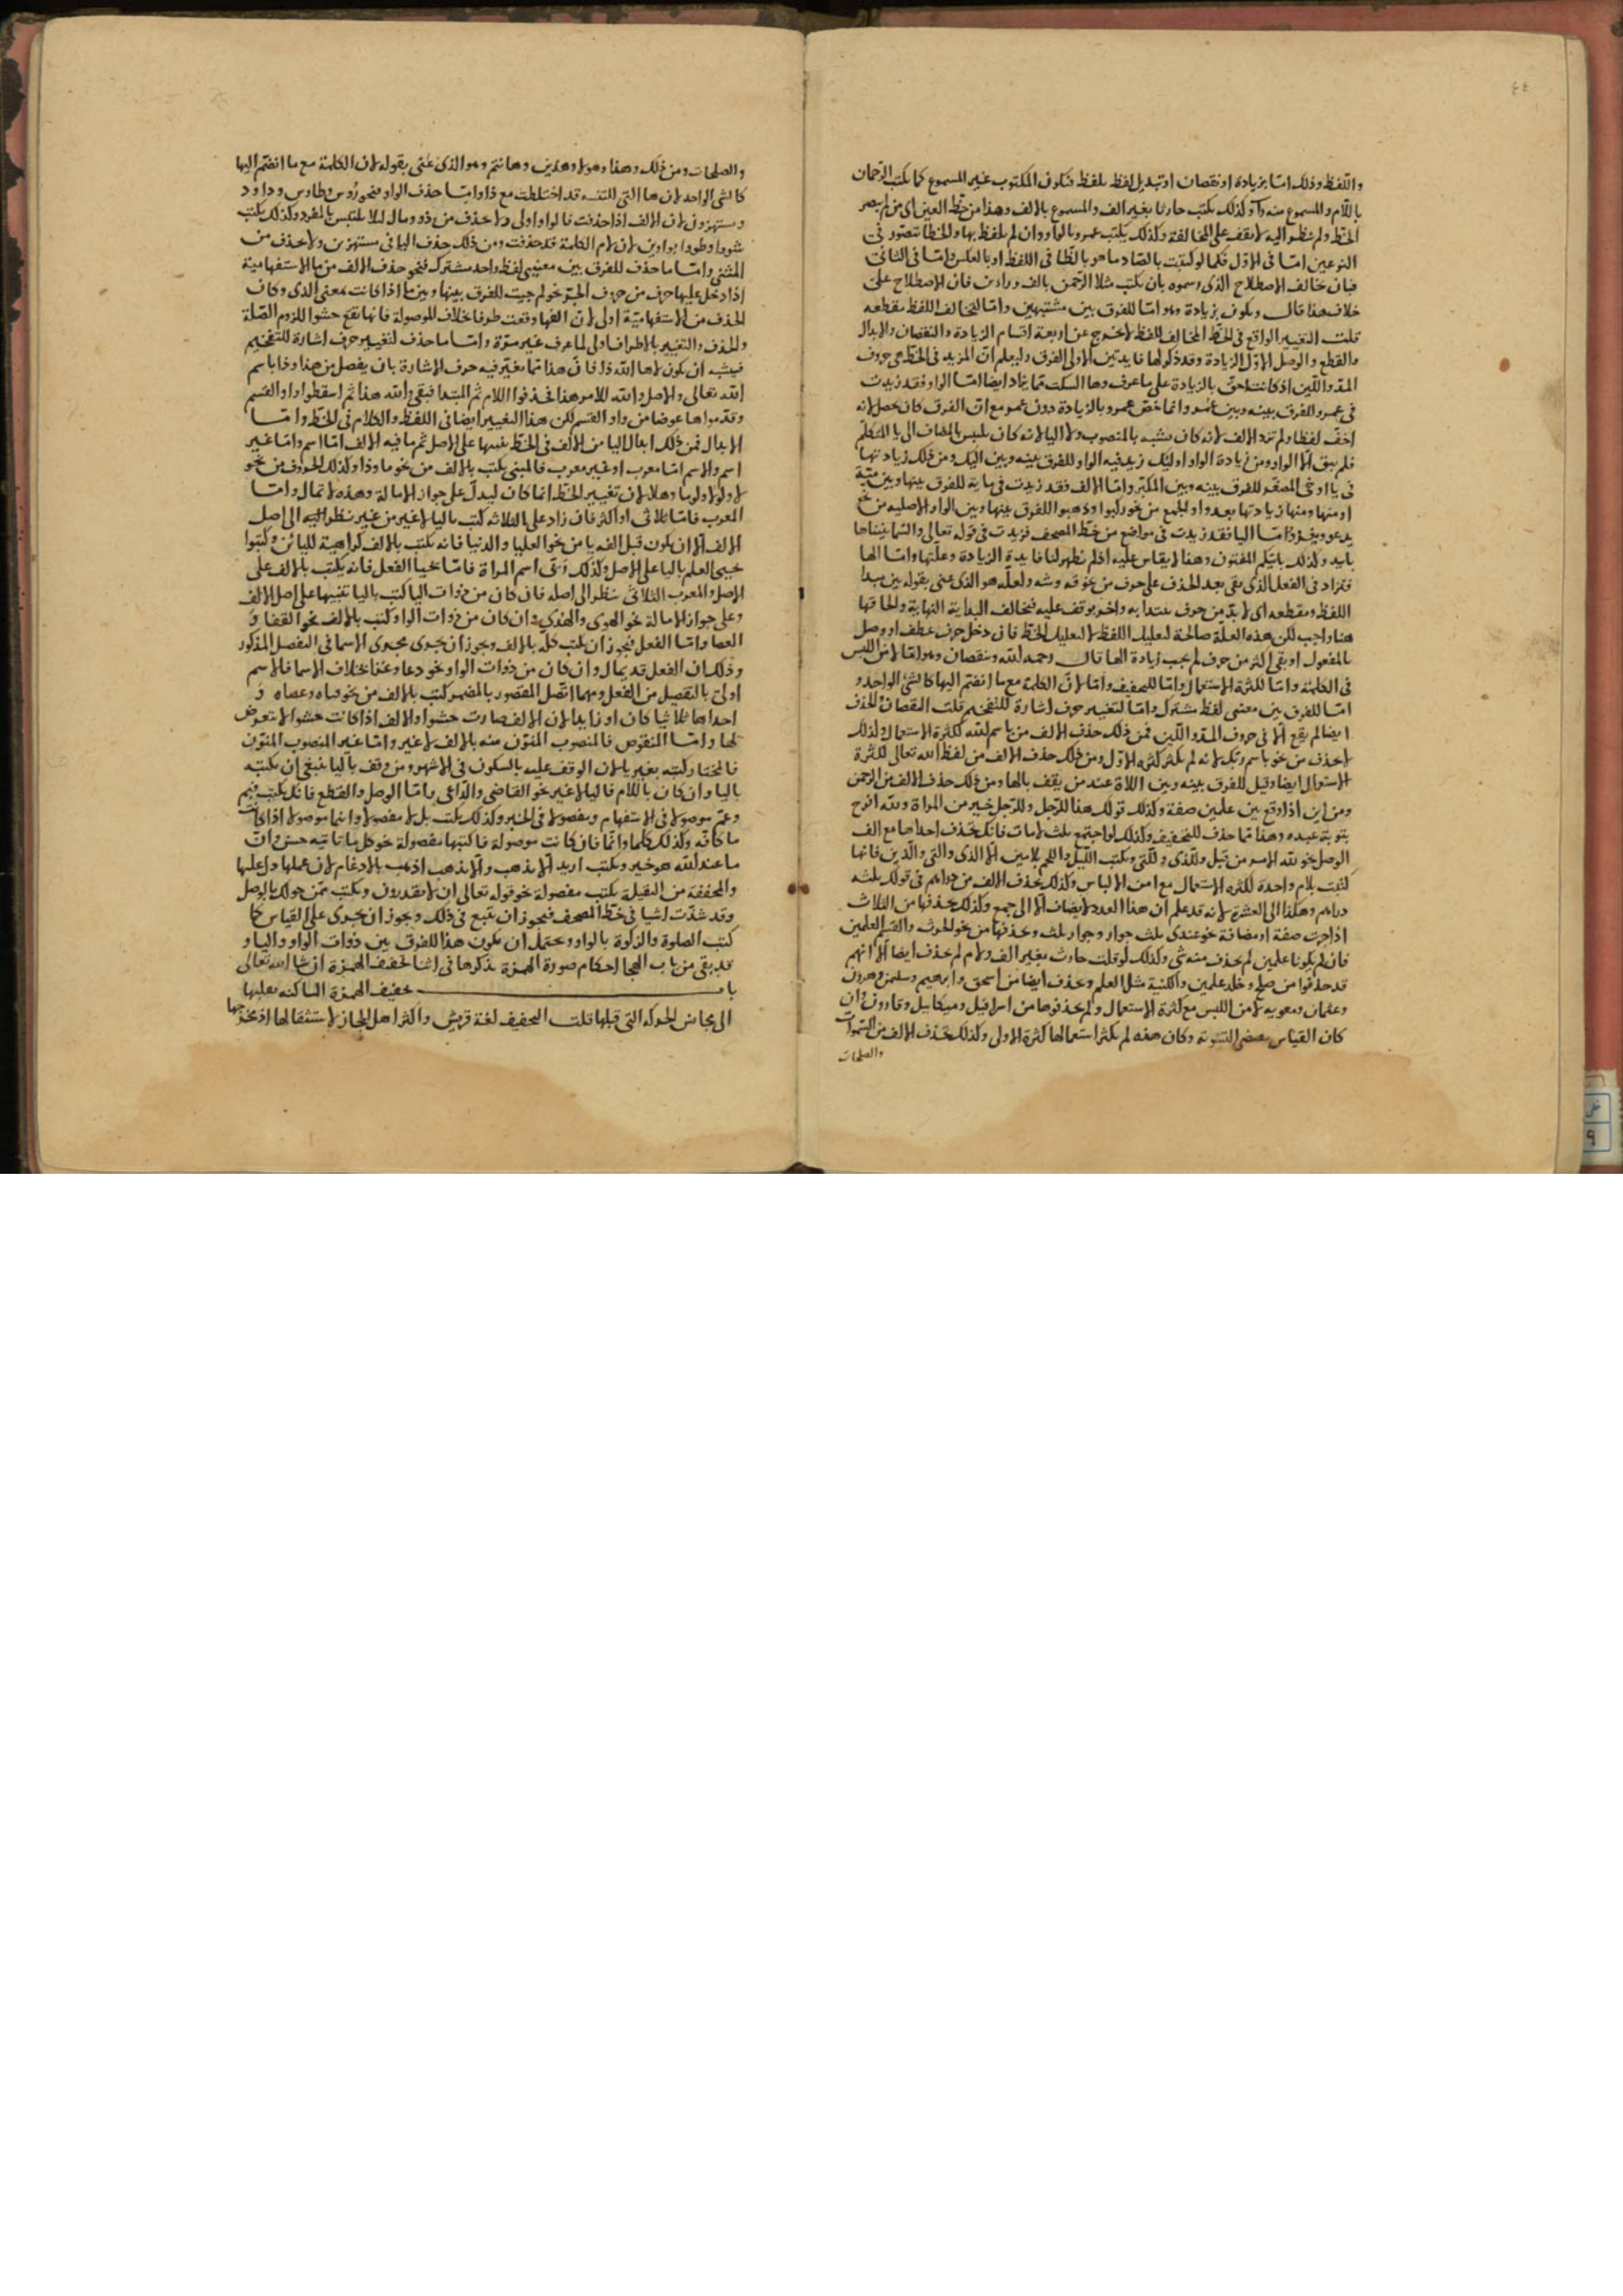 ٤٤
واللفظ وذلك امّا بزيادة او نقصان او تبديل لفظ بلفظ فيكون المكتوب غير المسموع كما يكتب الرحمان
باللّام والمسموع منه رآ وكذلك يكتب حارثا بغير الف والمسموع بالالف وهذا من حظ العين اى من لم يبصر
الخط ولم ينظر اليه لا يقف على المخالفة وكذلك يكتب عمرو بالواو وان لم يلفظ بها والخطا يتصوّر فى
النوعين امّا فى الاوّل فكما لو كتبت بالصّاد ما هو بالظا فى اللفظ او بالعكس وامّا فى الثانى
فبان خالف الاصطلاح الذى رسموه بان يكتب مثلا الرّحمن بالف وراءين فان الاصطلاح على
خلاف هذا قال ويكون بزيادة وهو امّا للفرق بين مشتبهين وامّا لتخالف اللفظ مقطعه
قلت التغيير الواقع فى الخط المخالف للفظ لا يخرج عن اربعة اقسام الزيادة والنقصان والابدال
والقطع والوصل الاوّل الزيادة وقد ذكر لها فايدتين الاولى الفرق وليعلم انّ المزيد فى الخط هى حروف
المد واللّين اذ كانت احق بالزيادة على ما عرف وها السكت ممّا يزاد ايضا امّا الواو فقد زيدت
فى عمرو للفرق بينه وبين عُمر وانما خصّ عمرو بالزيادة دون عمر مع انّ الفرق كان يحصل لانه
اخفّ لفظا ولم تزد الالف لانه كان يشبه بالمنصوب ولا اليا لانه كان يلبس بالمضاف الى يا المتكلّم
فلم يبق الّا الواو ومن زيادة الواو اوليك زيد فيه الواو للفرق بينه وبين اليك ومن ذلك زيادتها
فى يا اوخى المصغّر للفرق بينه وبين المكبّر وامّا الالف فقد زيدت فى ماية للفرق بينها وبين ميّة
او منها ومنها زيادتها بعد واو الجمع من نحو ركبوا وذهبوا للفرق بينها وبين الواو الاصليه من نحو
يدعو ويغزو وامّا اليا فقد زيدت فى مواضع من خطّ المصحف فزيدت فى قوله تعالى والسّما بنيناها
باييد وكذلك باييّكم المفتون وهذا لا يقاس عليه اذ لم تظهر لنا فايدة الزيادة وعلتها وامّا الها
فتزاد فى الفعل الذى بقى بعد الحذف على حرف من نحو قه وشه ولعلّه هو الذى عنى بقوله بين مبدا
اللفظ ومقطعه اى لا بدّ من حرف يبتدا به واخر يوقف عليه فيخالف البداية النهاية والحاقها
هنا واجب لكن هذه العلّة صالحة لتعليل اللفظ لا لتعليل الخط فان دخل حرف عطف او وصل
بالمفعول او بقى اكثر من حرف لم يجب زيادة الها قال رحمه الله ونقصان وهو امّا لامن اللبس
فى الكلمة وامّا لكثرة الاستعمال وامّا للتخفيف وامّا لانّ الكلمة مع ما انضم اليها كالشى الواحد و
امّا للفرق بين معنيى لفظ مشترك وامّا لتغيير حرف اشارة للتفخيم قلت النقصان والحذف
ايضا لم يقع الّا فى حروف المد واللّين فمن ذلك حذف الالف من باسم الله لكثرة الاستعمال ولذلك
لا يحذف من نحو باسم ربّك لانه لم يكثر كثرة الاوّل ومن ذلك حذف الالف من لفظ الله تعالى لكثرة
الاستعمال ايضا وقيل للفرق بينه وبين اللاة عند من يقف بالها ومن ذلك حذف الالف من الرحمن
ومن ابن اذا وقع بين علمين صفة وكذلك قولك هذا للرّجل وللرّجل خير من المراة ولله افرح
بتوبة عبده وهذا ممّا حذف للتخفيف وكذلك لو اجتمع ثلث لامات فانك تحذف احداها مع الف
الوصل نحو لله الامر من قبل وللّذى وللّتى ويكتب اللّيل واللحم بلامين الّا الذى والتى والّذين فانها
كتبت بلام واحدة لكثرة الاستعمال مع امن الالباس وكذلك يحذف الالف من دراهم فى قولك ثلثه
دراهم وهكذا الى العشرة لانه قد علم ان هذا العدد لا يضاف الّا الى جمع وكذلك حذفها من الثلاث
اذا جرت صفة او مضافة نحو عندى ثلث جوار وجوار ثلث وحذفها من نحو الحرث والقسم العلمين
فان لم يكونا علمين لم يحذف منه شى وكذلك لو قلت حارث بغير الف ولام لم يحذف ايضا الّا انهم
قد حذفوا من صلح وخلد علمين والكنية مثل العلم وحذف ايضا من اسحق وابرهيم وسليمن وهرون
وعثمان ومعويه لامن اللبس مع كثرة الاستعمال ولم يحذفوها من اسرافيل وميكاييل وقارون وان
كان القياس يقتضى التسوية وكان هذه لم يكثر استعمالها كثرة الاولى وكذلك تحذف الالف من السّموات
والصلحات
والصلحات ومن ذلك وهذا وهولا وهذين وهانتم وهو الذى عنى بقوله لان الكلمة مع ما انضم اليها
كالشى الواحد لان ها التى للتنبيه قد اختلطت مع ذا وامّا حذف الواو فنحو رُوس وطاوس وداود
ومستهزون لان الالف اذا حذفت فالواو اولى ولا يحذف من ذوو ومال ليلا يلتبس بالمفرد وكذلك يكتب
شووا وطووا بواوين لان لام الكلمة قد حذفت ومن ذلك حذف اليا فى مستهزين ولا يحذف من
المثنى وامّا ما حذف للفرق بين معنيى لفظ واحد مشترك فنحو حذف الالف من ما الاستفهامية
اذا دخل عليها حرف من حروف الجرّ نحو لم جيت للفرق بينها وبين ما اذا كانت بمعنى الذى وكان
الحذف من الاستفهاميّة اولى لانّ الفها وقعت طرفا خلاف الموصولة فانها تقع حشوا للزوم الصّلة
والحذف والتغيير بالاطراف اولى لما عرف غير مرّة وامّا ما حذف لتغيير حرف اشارة للتفخيم
فيشبه ان يكون لاها الله ذا فانّ هذا ممّا يغيّر فيه حرف الاشارة بان يفصل من هذا وذا باسم
الله تعالى والاصل والله للامر هذا فحذفوا اللام ثم المبتدا فبقى والله هذا ثم اسقطوا واو القسم
وقدّموا ها عوضا من واو القسم لكن هذا التغيير ايضا فى اللفظ والكلام فى الخط وامّا
الابدال فمن ذلك ابدال اليا من الالف فى الخط تنبيها على الاصل ثم ما فيه الالف امّا اسم وامّا غير
اسم والاسم امّا معرب او غير معرب فالمبنى يكتب بالالف من نحو ما وذا وكذلك الحروف من نحو
لا ولولا ولوما وهلا لان تغيير الخط انما كان ليدلّ على جواز الامالة وهذه لا تمال وامّا
المعرب فامّا ثلاثى او اكثر فان زاد على الثلاثه كتب باليا لا غير من غير نظر اليه الى اصل
الالف الّا ان يكون قبل الفه يا من نحو العليا والدنيا فانه يكتب بالالف كراهية لليائين وكتبوا
يحيى العلم باليا على الاصل وكذلك اسم المراة فامّا يحيا الفعل فانه يكتب بالالف على
الاصل والمعرب الثلاثى ينظر الى اصله فان كان من ذوات اليا كتب باليا تنبيها على اصل الالف
وعلى جواز الامالة نحو الهوى والهدى وان كان من ذوات الواو كتب بالالف نحو القفا و
العصا وامّا الفعل فيجوز ان يكتب كلّه بالالف ويجوز ان يجرى مجرى الاسما فى التفصيل المذكور
وذلك ان الفعل قد يمال وان كان من ذوات الواو نحو دعا وغزا بخلاف الاسما فالاسم
اولى بالتفصيل من الفعل ومهما اتصل المقصور بالمضمر كتب بالالف من نحو فتاه وعصاه و
احداها ثلاثيا كان او زايدا لان الالف صارت حشوا والالف اذا كانت حشوا لا يتعرض
لها وامّا المنقوص فالمنصوب المنوّن منه بالالف لا غير وامّا غير المنصوب المنوّن
فالمختار كتبه بغير يا لان الوقف عليه بالسكون فى الاشهر ومن وقف باليا ينبغى ان يكتبه
باليا وان كان باللام فاليا لا غير نحو القاضى والدّاعى وامّا الوصل والقطع فانك تكتب فيم
وعمّ موصولا فى الاستفهام ومفصولا فى الخبر وكذلك يكتب بل لا مفصولا وانما موصولا اذا كانت
ما كافّه وكذلك كلّما وانّما فان كانت موصولة فاكتبها مفصولة نحو كل ما تاتيه حسن وانّ
ما عند الله هو خير ويكتب اريد الّا يذهب والّا يذهب اذهب بالادغام لان عملها دلّ عليها
والمخففة من الثقيلة يكتب مفصولة نحو قوله تعالى ان لا يقدرون ويكتب عمّن حولك بالوصل
وقد شذّت اشيا فى خط المصحف فيجوز ان تتبع فى ذلك ويجوز ان يجرى على القياس كما
كتب الصلوة والزكوة بالواو ويحتمل ان يكون هذا للفرق بين ذوات الواو واليا و
قد بقى من باب الهجا احكام صورة الهمزة نذكرها فى اثنا تخفيف الهمزة ان شا الله تعالى
باب تخفيف الهمزة الساكنه بقلبها
الى مجانس الحركة التى قبلها قلت التخفيف لغة قريش واكثر اهل الحجاز لاستثقالها اذ مخرجها